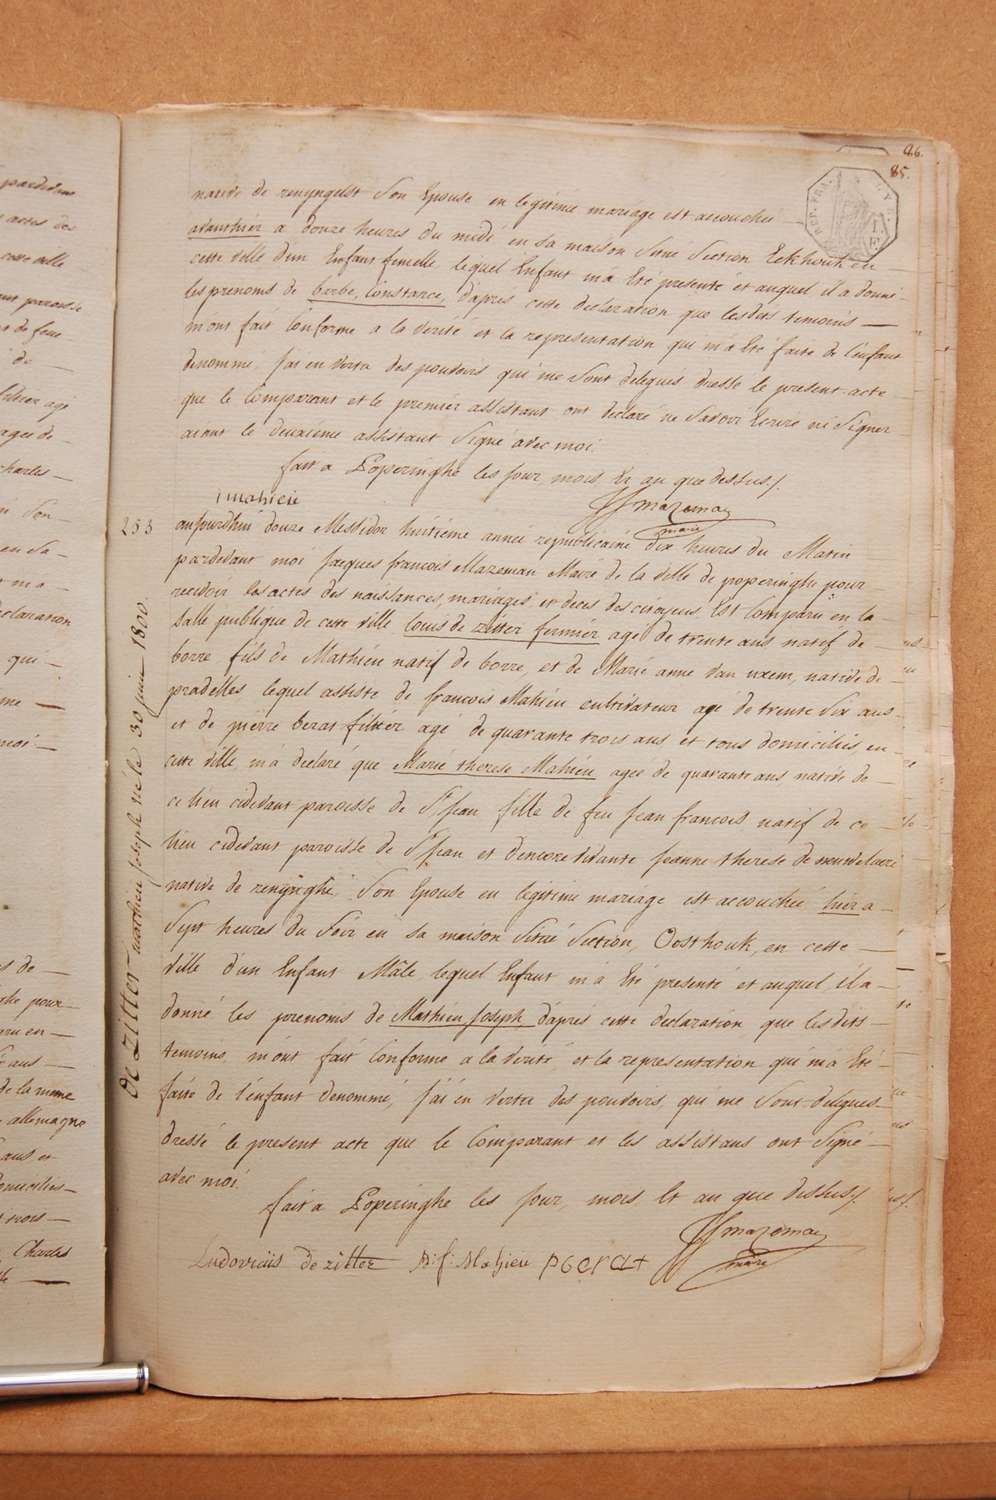 46.
85.
REP. FRA.
native de renyngelst Son Epouse en legitime mariage est accouchée
avanthier a douze heures du midi en sa maison Situé Section Eekhouk en
cette ville d'un Enfant femelle, lequel Enfant m'a Eté presenté et auquel il a donné
les prenoms de berbe, Constance, d'après cette declaration que lesdits temoins —
m'ont fait Conforme a la verité et la representation qui m'a Eté faite de l'enfant
denommé, J'ai en vertu des pouvoirs qui me Sont delegués dressé le present acte
que le Comparant et le premier assistant ont declaré ne Savoir Ecrire ni Signer
aiant le deuxieme assistant Signé avec moi.
fait a Poperinghe les Jour, mois Et an que dessus /.
Mahieu
JJ mazeman
maire
253
aujourd'hui douze Messidor huitieme année republicaine dix heures du Matin
pardevant moi Jacques francois Mazeman Maire de la ville de poperinghe pour
recevoir les actes des naissances, mariages, et deces des citoyens, Est Comparu en la
Salle publique de cette ville Louis de zitter fermier agé de trente ans natif de
borre fils de Mathieu natif de borre, et de Marie anne van uxem, native de
pradelles lequel assisté de francois Mahieu cultivateur agé de trente Six ans
et de pierre berat filtier agé de quarante trois ans et tous domiciliés en
cette ville m'a declaré que Marie therese Mahieu agée de quarante ans, native de
ce lieu cidevant paroisse de St Jean fille de feu Jean francois natif de ce
lieu cidevant paroisse de St Jean et d'encore vivante Jeanne therese de
native de renijnghe Son Epouse en legitime mariage est accouchée hier a
Sept heures du Soir en sa maison Situé Section, Oosthouk, en cette —
ville d'un Enfant Mâle, lequel Enfant m'a Eté presenté et auquel il a
donné les prenoms de Mathieu Joseph d'après cette declaration que lesdits —
temoins m'ont fait Conforme a la verité, et la representation qui m'a Eté
faite de l'enfant denommé, J'ai en vertu des pouvoirs, qui me Sont delegués
dressé le present acte que le Comparant et les assistans ont Signé —
avec moi.
fait a Poperinghe les Jour, mois Et an que dessus /.
JJ mazeman
maire
Ludovicus de zitter    Mahieu    P berat
de Zitter mathieu Joseph né le 30 juin 1800.